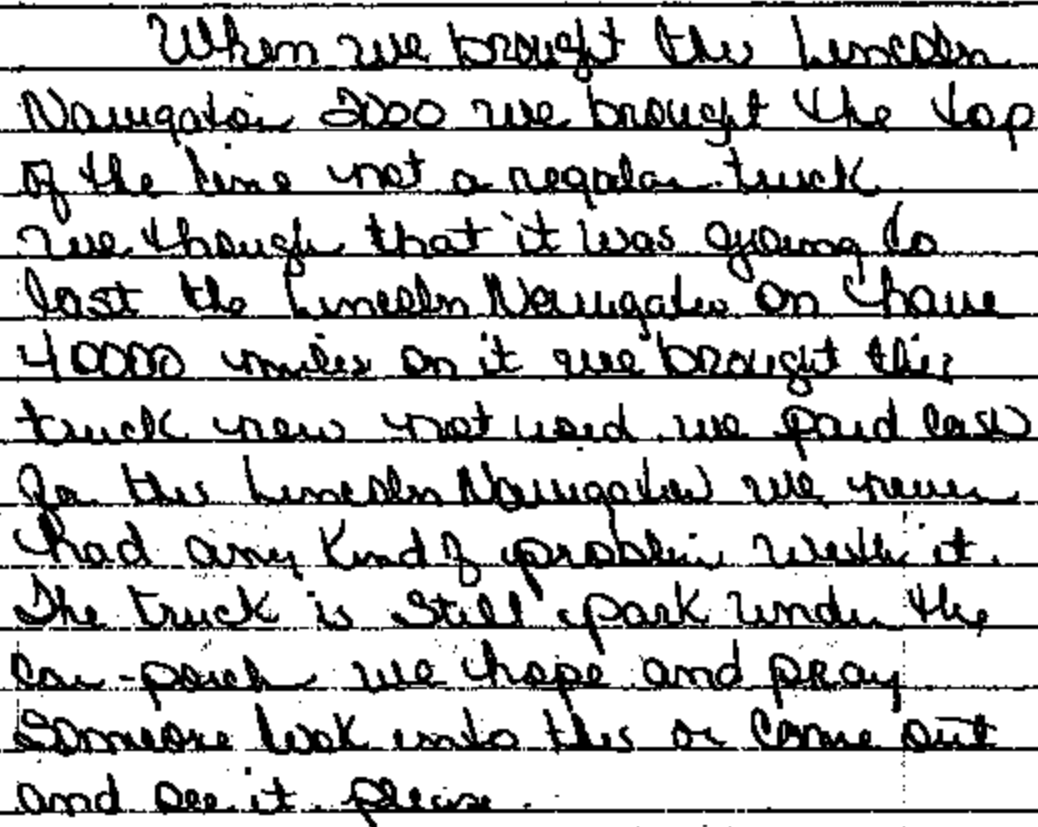 When we brought the Lincoln
Navigator 2000 we brought the top
of the line not a regular truck
we though that it was going to
last the Lincoln Navigator on have
40000 miles on it we brought this
truck new not used. we paid cash
for this Lincoln Navigator we never
had any kind of problem with it.
The truck is still park under the
car-porch we hope and pray
Someone look into this or come out
and see it please.